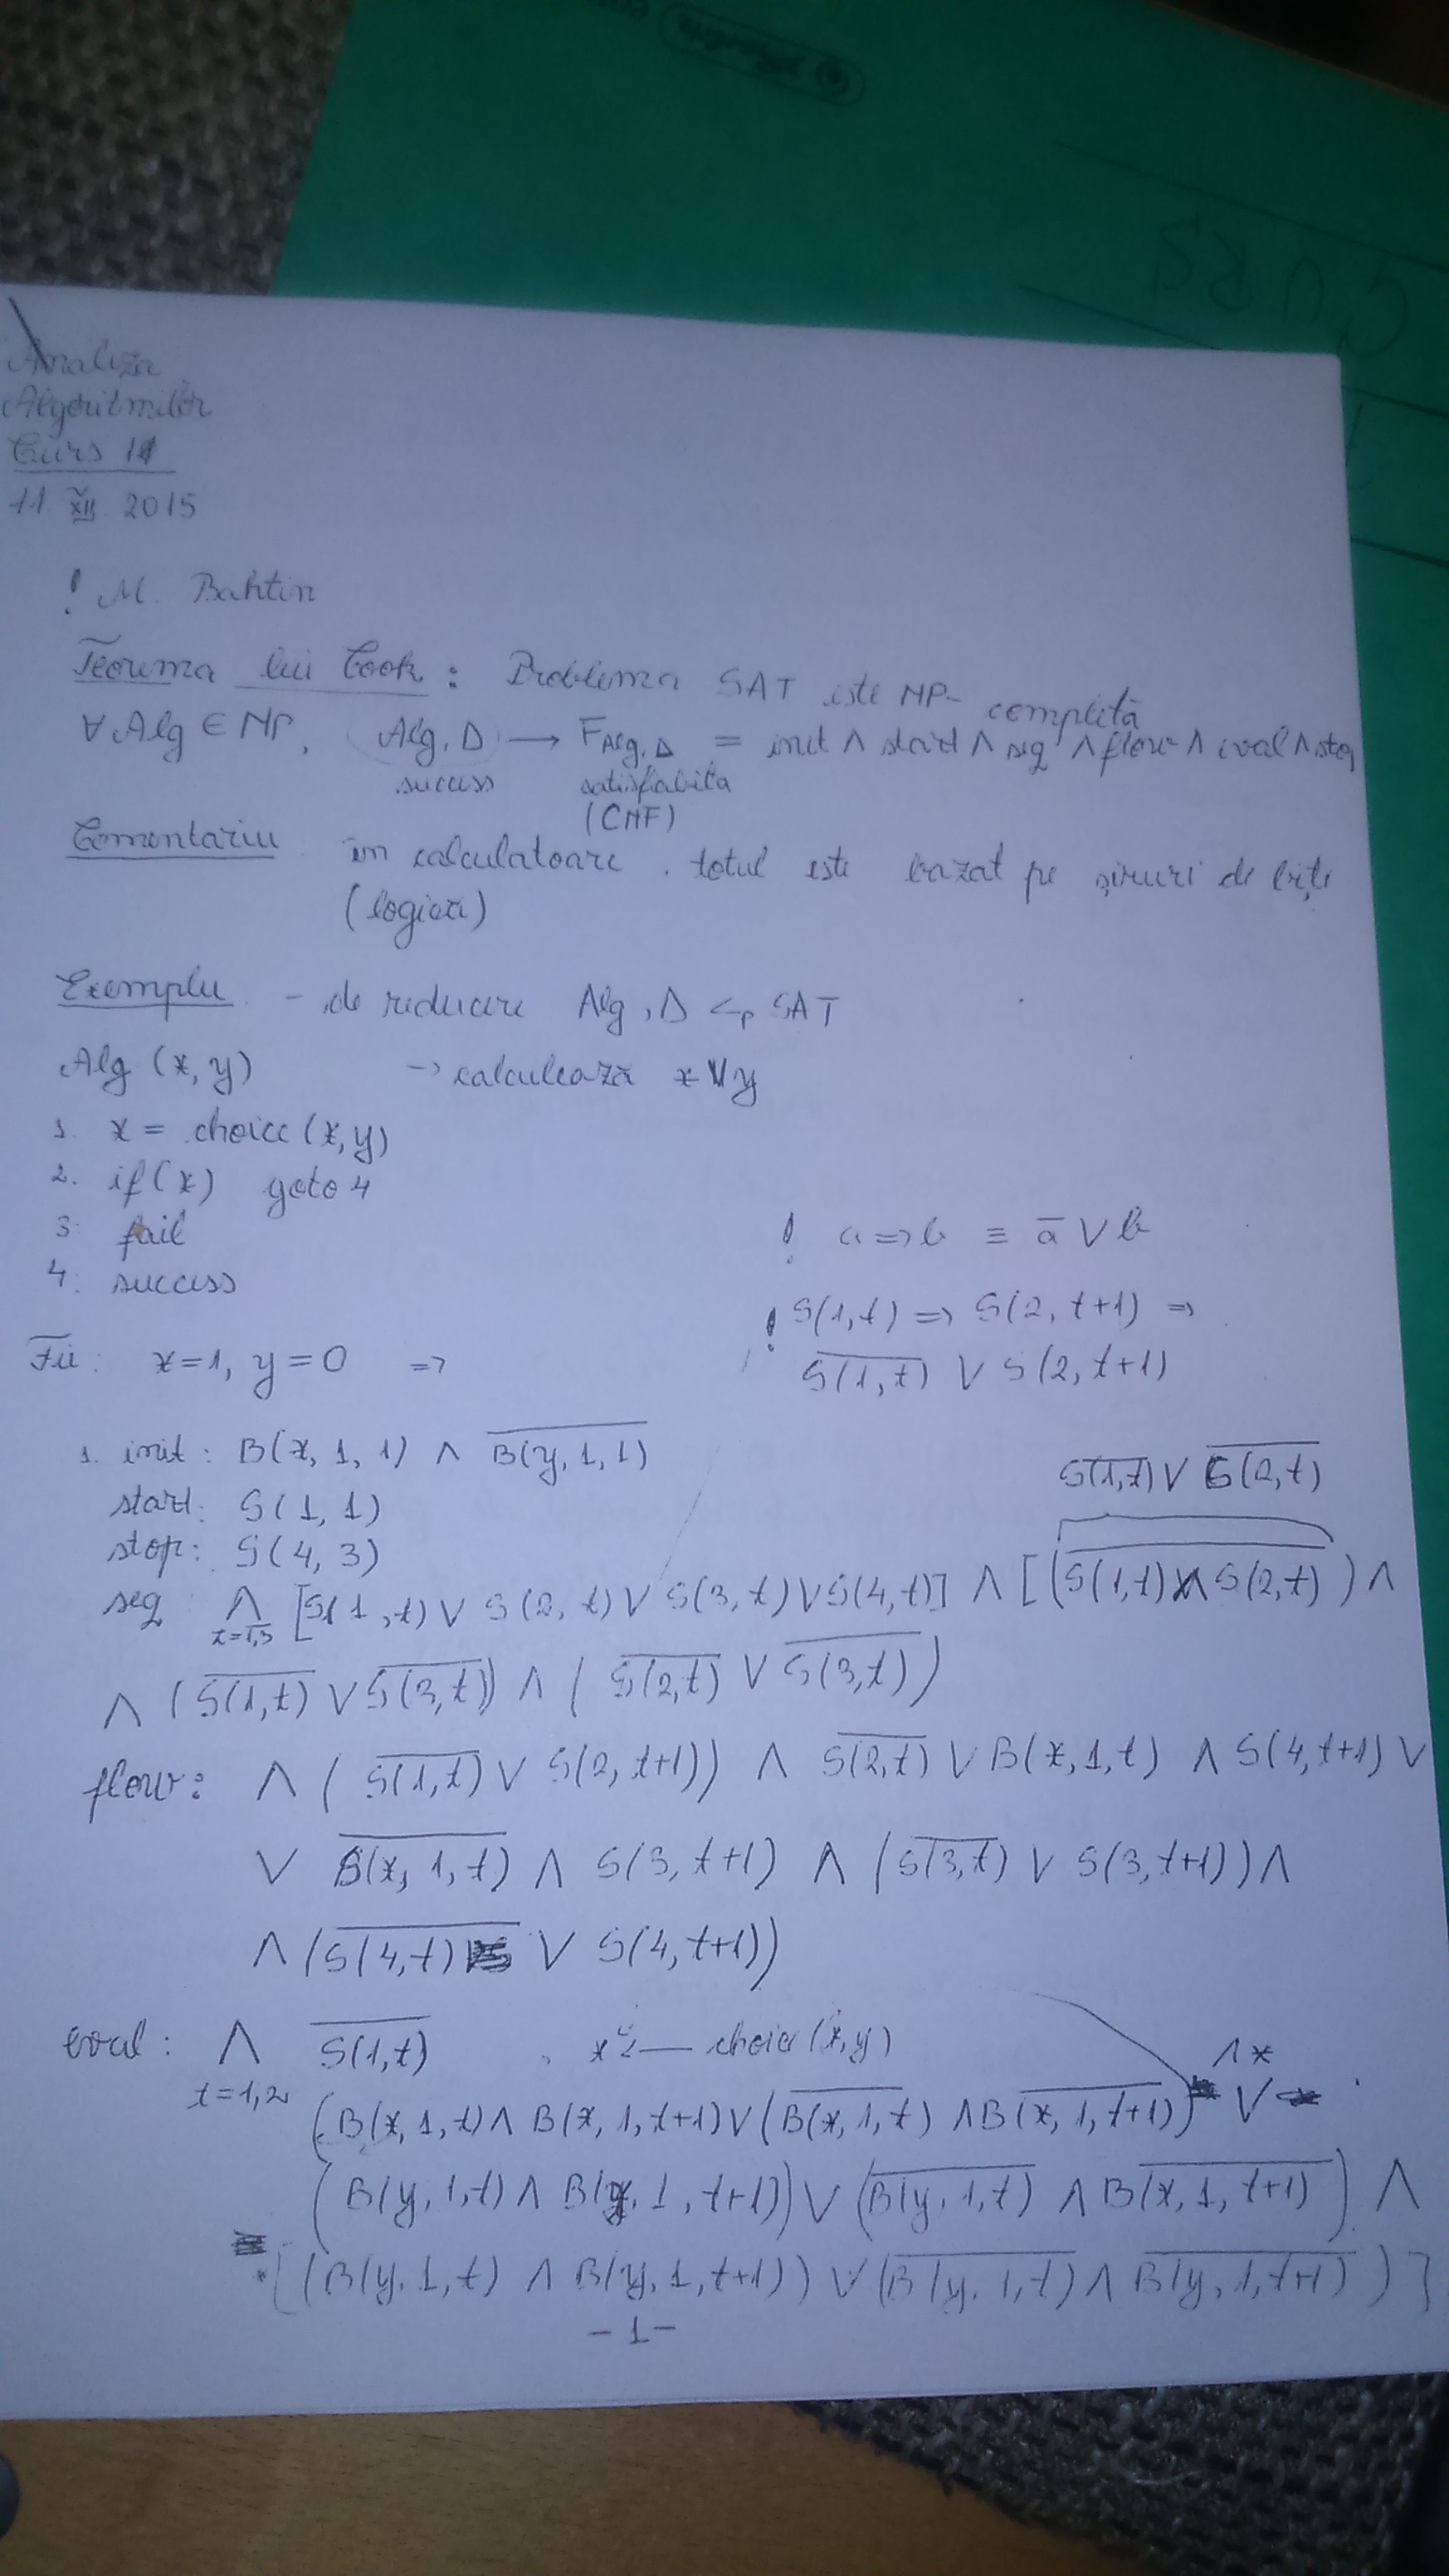 CURS
Analiza
Algoritmilor
Curs 11
11 XII. 2015
! M. Bahtin
Teorema lui Cook : Problema SAT este NP- completă
∀ Alg ∈ NP, Alg, Δ → F_Alg, Δ = init ∧ start ∧ seq ∧ flow ∧ eval ∧ stop
succes satisfiabilă
(CNF)
Comentariu în calculatoare, totul este bazat pe șiruri de biți
(logica)
Exemplu - de reducere Alg, Δ ≤p SAT
Alg (x, y) → calculează x V y
1. x = choice (x, y)
2. if (x) goto 4
3. fail
4. success
! a => b ≡ a̅ V b
! S(1, t) => S(2, t+1) =>
S̅(̅1̅,̅ ̅t̅)̅ V S(2, t+1)
Fie: x=1, y=0 =>
1. init: B(x, 1, 1) ∧ B̅(̅y̅,̅ ̅1̅,̅ ̅1̅)̅
start: S(1, 1)
stop: S(4, 3)
S̅(̅1̅,̅t̅)̅ V S̅(̅2̅,̅t̅)̅
seq ∧ t=1,3 [S(1, t) V S(2, t) V S(3, t) V S(4, t)] ∧ [(S̅(̅1̅,̅t̅)̅ ̅∧̅ ̅S̅(̅2̅,̅t̅)̅) ∧
∧ (S̅(̅1̅,̅t̅)̅ V S̅(̅3̅,̅t̅)̅) ∧ (S̅(̅2̅,̅t̅)̅ V S̅(̅3̅,̅t̅)̅)
flow: ∧ (S̅(̅1̅,̅t̅)̅ V S(2, t+1)) ∧ S̅(̅2̅,̅t̅)̅ V B(x, 1, t) ∧ S(4, t+1) V
V B̅(̅x̅,̅ ̅1̅,̅ ̅t̅)̅ ∧ S(3, t+1) ∧ (S̅(̅3̅,̅t̅)̅ V S(3, t+1)) ∧
∧ (S̅(̅4̅,̅t̅)̅ V S(4, t+1))
eval: ∧ t=1,2 S̅(̅1̅,̅t̅)̅ , x — choice (x, y)
∧ *
(B(x, 1, t) ∧ B(x, 1, t+1) V (B̅(̅x̅,̅ ̅1̅,̅ ̅t̅)̅ ∧ B̅(̅x̅,̅ ̅1̅,̅ ̅t̅+̅1̅)̅) V
(B(y, 1, t) ∧ B(x, 1, t+1)) V (B̅(̅y̅,̅ ̅1̅,̅ ̅t̅)̅ ∧ B̅(̅x̅,̅ ̅1̅,̅ ̅t̅+̅1̅)̅) ∧
* [(B(y, 1, t) ∧ B(y, 1, t+1)) V (B̅(̅y̅,̅ ̅1̅,̅ ̅t̅)̅ ∧ B̅(̅y̅,̅ ̅1̅,̅ ̅t̅+̅1̅)̅)]
- 1 -